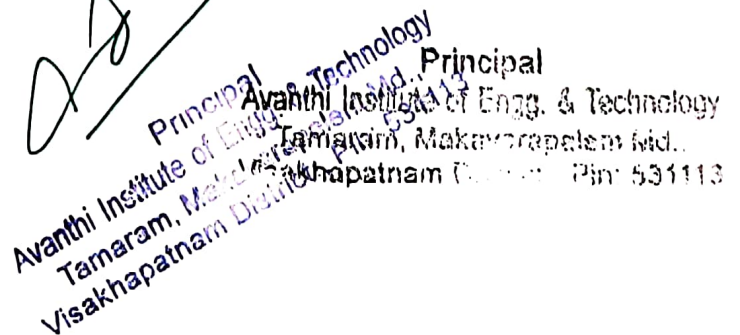 Principal
Avanthi Institute of Engg. & Technology
Tamaram, Makavarapalem Md.,
Visakhapatnam District, Pin: 531113
Principal
Avanthi Institute of Engg. & Technology
Tamaram, Makavarapalem Md.,
Visakhapatnam Pin: 531113